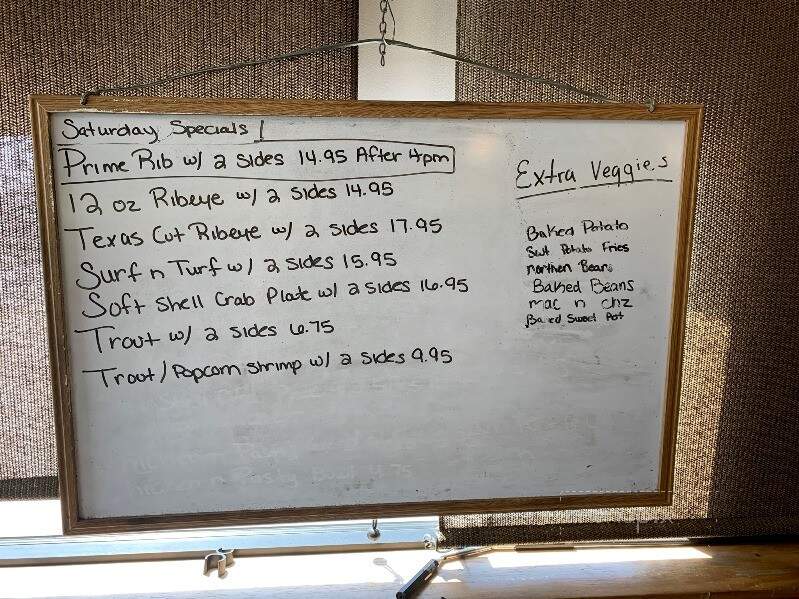 Saturday Specials!
Prime Rib w/ 2 Sides 14.95 After 4pm
12 oz Ribeye w/ 2 sides 14.95
Texas Cut Ribeye w/ 2 sides 17.95
Surf n Turf w/ 2 sides 15.95
Soft Shell Crab Plate w/ 2 sides 16.95
Trout w/ 2 sides 6.75
Trout/Popcorn Shrimp w/ 2 Sides 9.95
Extra Veggies
Baked Potato
Swt Potato Fries
northen Beans
Baked Beans
mac n chz
Ba ed Sweet Pot